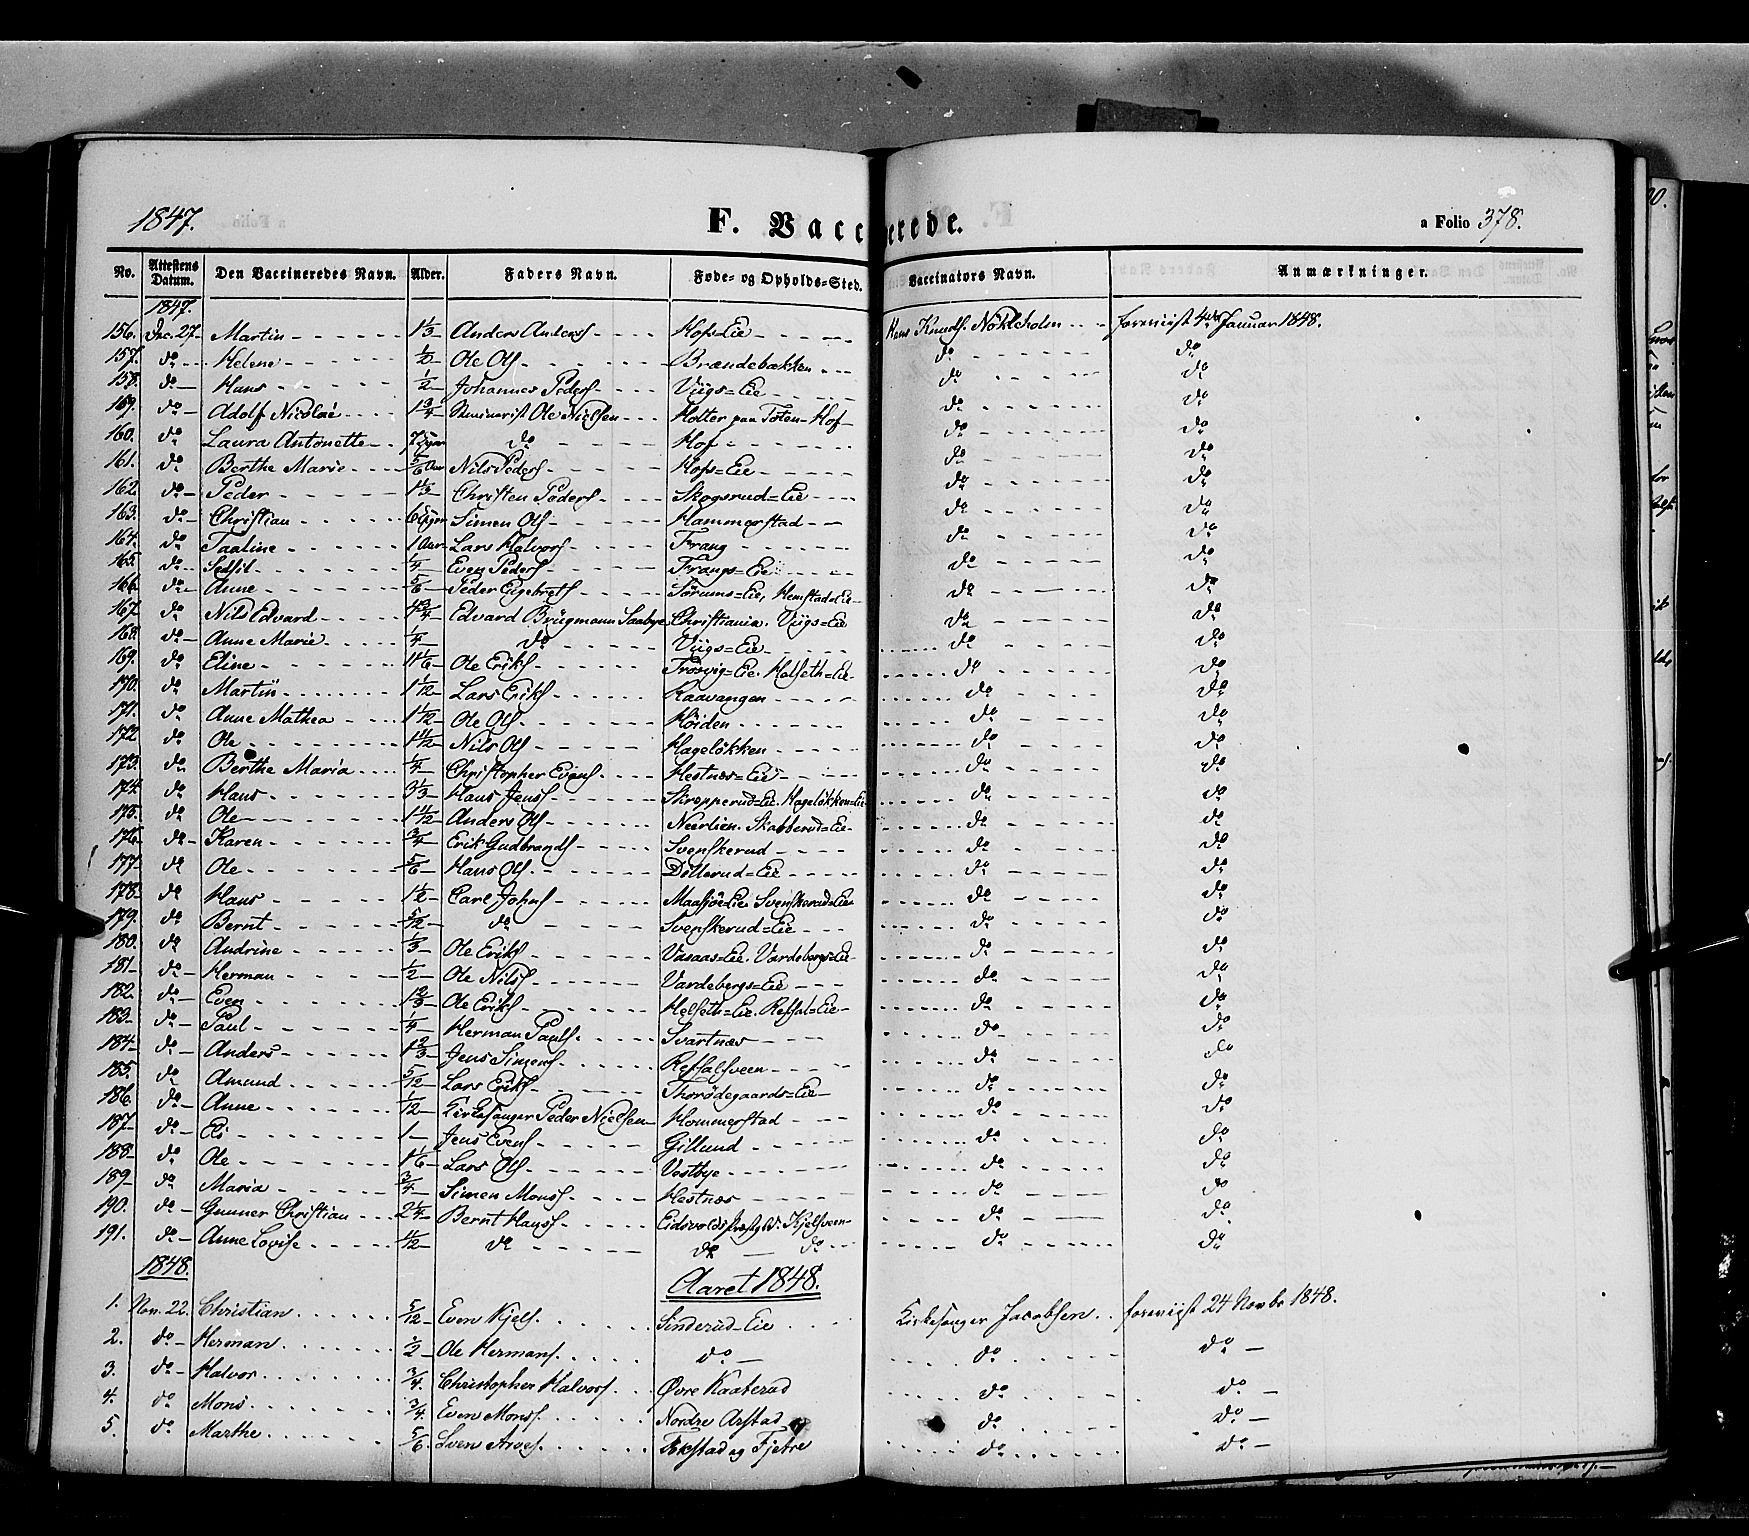 1847. F. Vaccinerede. a Folio 378.
No. Attestens Datum. Den Vaccineredes Navn. Alder. Faders Navn. Føde- og Opholds-Sted. Vaccinators Navn. Anmærkninger.
1847.
156. Dec. 27 Martin 1 1/3 Anders Anders. Hofs=Eie Hans Knuds. Nökleholm foreviist 4de Januar 1848.
157. do Helene 1/2 Ole Ols. Brændebækken do do
158. do Hans 1/2 Johannes Peders. Viigs=Eie do do
159. do Adolf Nicolai 1 3/4 Ole Nielsen Holter paa Toten - Hof do do
160. do Laura Antonette do Hof do do
161. do Berthe Marie 5/6 Aar Nils Peders. Hofs=Eie do do
162. do Peder 1 1/3 Christen Peders. Skogsrud=Eie do do
163. do Christian Simen Ols. Hammerstad do do
164. do Taaline 1 Aar Lars Halvors. Frang do do
165. do 1/4 Even Peders. Frangs=Eie do do
166. do Anne 5/6 Peder Eigebrets. Sörums=Eie, Hemstad=Eie do do
167. do Nils Edvard 4 3/4 Edvard Brügmann Saabye Christiania. Viigs=Eie do do
168. do Anne Marie 1/4 do Viigs=Eie do do
169. do Eline 1 1/6 Ole Eriks. Frosvig=Eie. Helseth=Eie do do
170. do Martin 1 1/12 Lars Eriks. Raavangen do do
171. do Anne Mathea 1 1/12 Ole Ols. Höiden do do
172. do Ole 1 1/12 Nils Ols. Hagelökken do do
173. do Berthe Maria 1/4 Christopher Evens. Hestnæs=Eie do do
174. do Hans 3 1/3 Hans Jens. Skrepperud=Eie. Hagelökken=Eie do do
175. do Ole 1 1/12 Anders Ols. Neerlien. Skabberud=Eie do do
176. do Karen 3/4 Erik Gudbrands. Svenskerud do do
177. do Ole 5/6 Hans Ols. Döllerud=Eie do do
178. do Hans 1 1/2 Carl Johns. Maasjöe=Eie. Svenskerud=Eie do do
179. do Bernt 5/12 do Svenskerud=Eie do do
180. do Andrine 1/3 Ole Eriks. Vasaas=Eie. Vardebergs=Eie do do
181. do Herman 1/2 Ole Nils. Vardebergs=Eie do do
182. do Even 1 2/3 Ole Eriks. Helseth=Eie. Refsal=Eie do do
183. do Paul 1/4 Herman Pauls. Svartnæs do do
184. do Anders 1 2/3 Jens Simens. Refsalsveen do do
185. do Amund 5/12 Lars Eriks. Thorödegaards=Eie do do
186. do Anne 1/12 Kirkesanger Peder Nielsen Hommerstad do do
187. do Eli 1 Jens Evens. Gillund do do
188. do Ole 1 1/6 Lars Ols. Vestbye do do
189. do Maria 3/4 Simen Mons. Hestnæs do do
190. do Gunner Christian 2 1/4 Bernt Hans. Eidsvolds Præstgjld. Kjelsveen do do
191. do Anne Lovise do do do do do
1848. Aaret 1848.
1. Nov. 22. Christian 5/12 Even Kjels. Sinderud=Eie Kirkesanger Jacobsen foreviist 24 Novbr 1848.
2. do Herman 1/2 Ole Hermans. do do do
3. do Halvor 3/4 Christopher Halvors. Øvre Kaaterud do do
4. do Mons 3/4 Even Mons. Nordre Arstad do do
5. do Marthe 5/6 Sven Arves. Ekstad og Fjetre do do